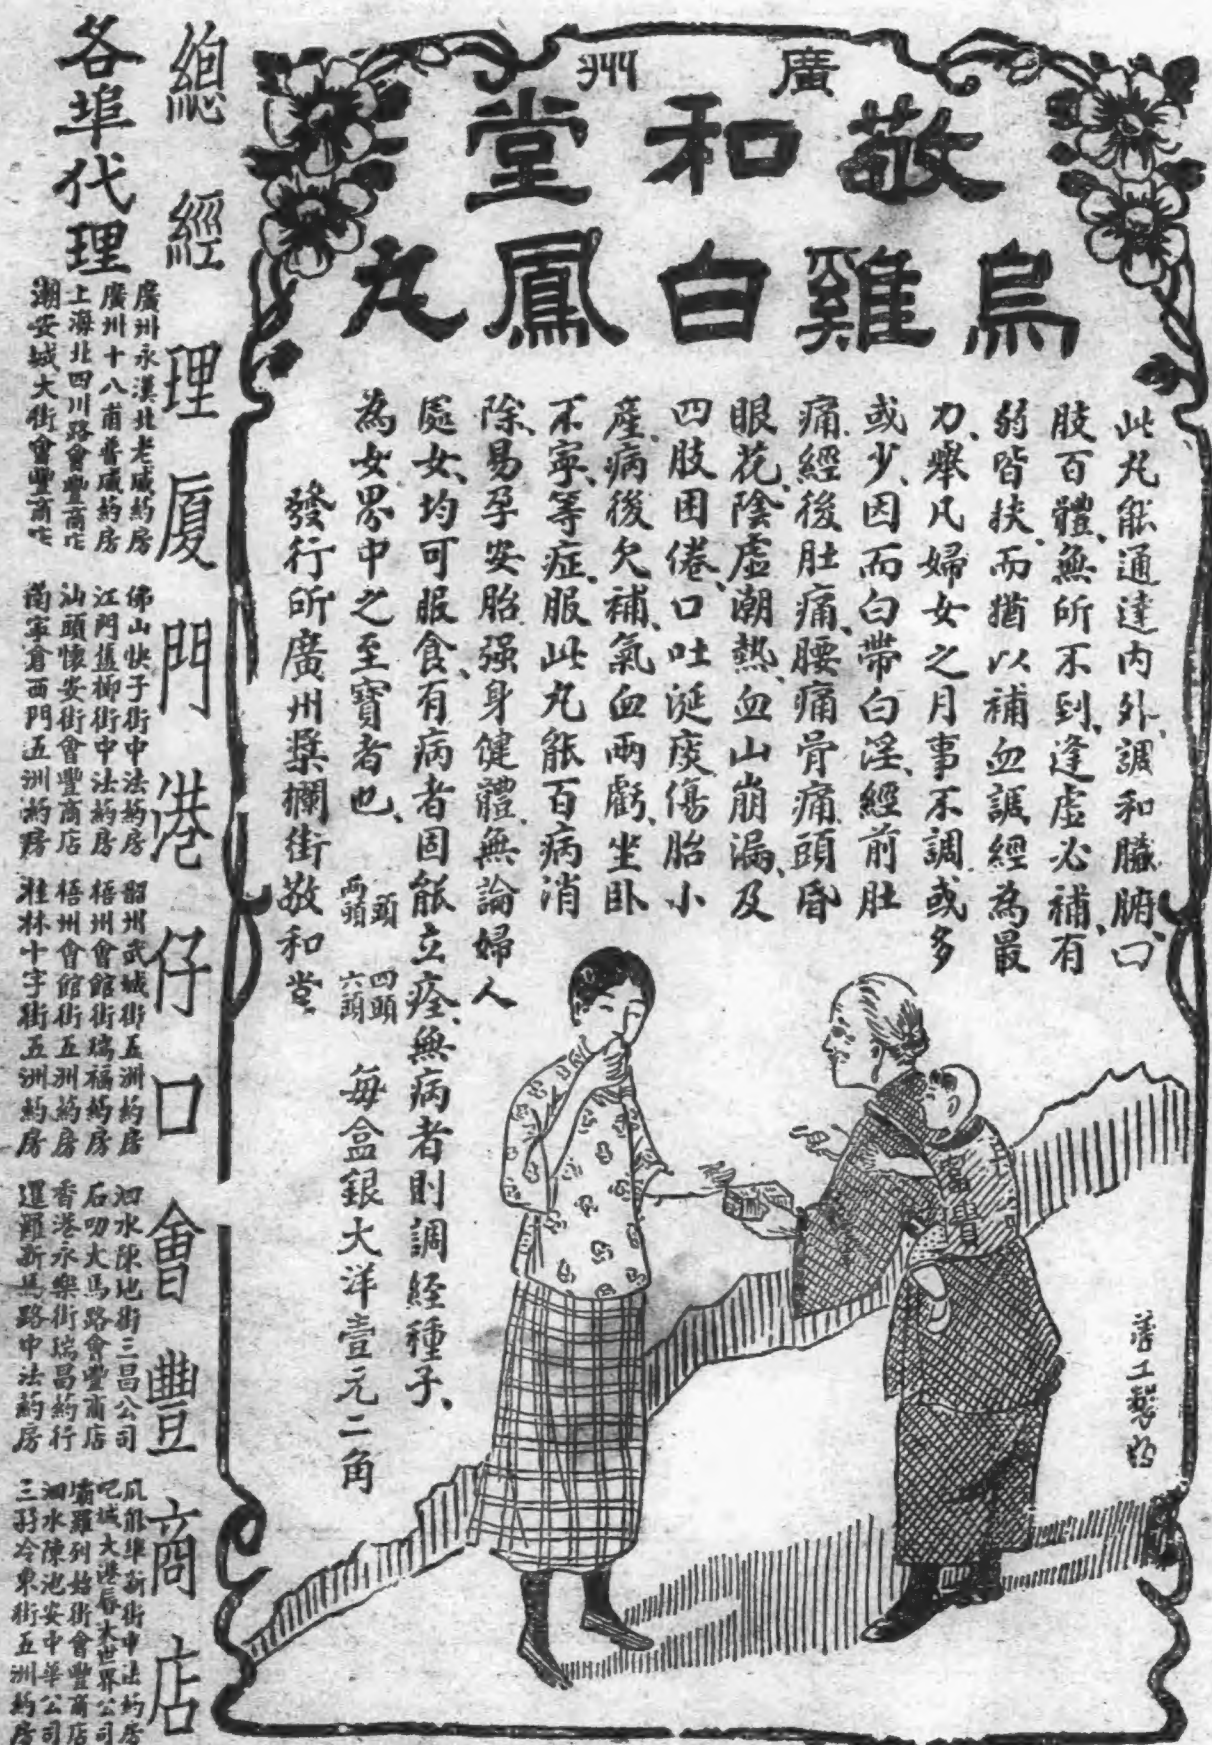 廣州
敬和堂
烏雞白鳳丸
此丸能通達內外、調和臟腑、口
肢百體、無所不到、逢虛必補、有
弱皆扶、而猶以補血調經為最
力、舉凡婦女之月事不調、或多
或少、因而白帶白淫、經前肚
痛、經後肚痛、腰痛骨痛頭昏
眼花、陰虛潮熱、血山崩漏、及
四肢困倦、口吐涎痰傷胎小
產、病後欠補、氣血兩虧、坐卧
不寧、等症、服此丸能百病消
除、易孕安胎强身健體、無論婦人
處女、均可服食、有病者固能立痊、無病者則調經種子、
為女界中之至寶者也、
四頭
六頭
每盒銀大洋壹元二角
發行所廣州槳欄街敬和堂
總經理廈門港仔口會豐商店
各埠代理
廣州永漢北老威葯房
廣州十八甫普威葯房
上海北四川路會豐商店
潮安城大街會豐商店
佛山快子街中法葯房
江門
街中法葯房
汕頭懷安街會豐商店
南寧倉西門五洲葯房
韶州武城街五洲葯房
梧州會館街瑞福葯房
梧州會館街五洲葯房
桂林十字街五洲葯房
泗水陳地街三昌公司
石叻大馬路會豐商店
香港永樂街瑞昌葯行
暹羅新馬路中法葯房
新街中法葯房
吧城大港唇大世界公司
街會豐商店
泗水陳池安中華公司
東街五洲葯房